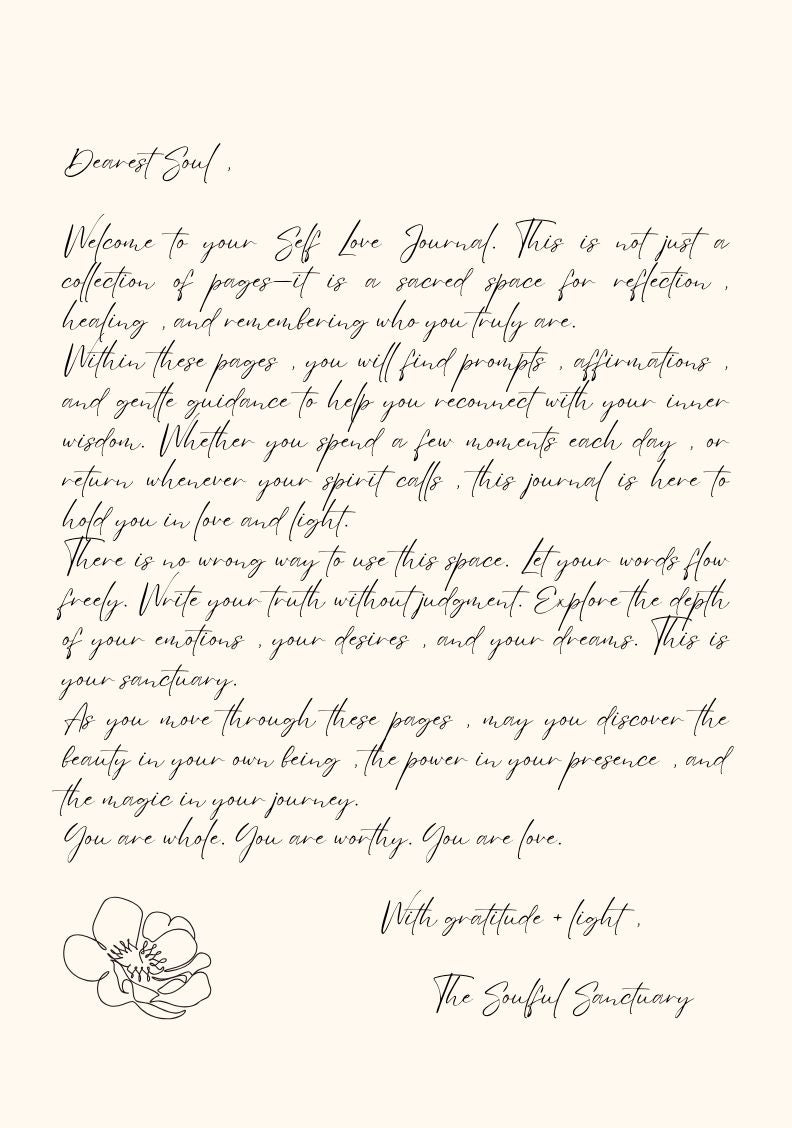 Dearest Soul ,
Welcome to your Self Love Journal. This is not just a
collection of pages—it is a sacred space for reflection ,
healing , and remembering who you truly are.
Within these pages , you will find prompts , affirmations ,
and gentle guidance to help you reconnect with your inner
wisdom. Whether you spend a few moments each day , or
return whenever your spirit calls , this journal is here to
hold you in love and light.
There is no wrong way to use this space. Let your words flow
freely. Write your truth without judgment. Explore the depth
of your emotions , your desires , and your dreams. This is
your sanctuary.
As you move through these pages , may you discover the
beauty in your own being , the power in your presence , and
the magic in your journey.
You are whole. You are worthy. You are love.
With gratitude + light ,
The Soulful Sanctuary